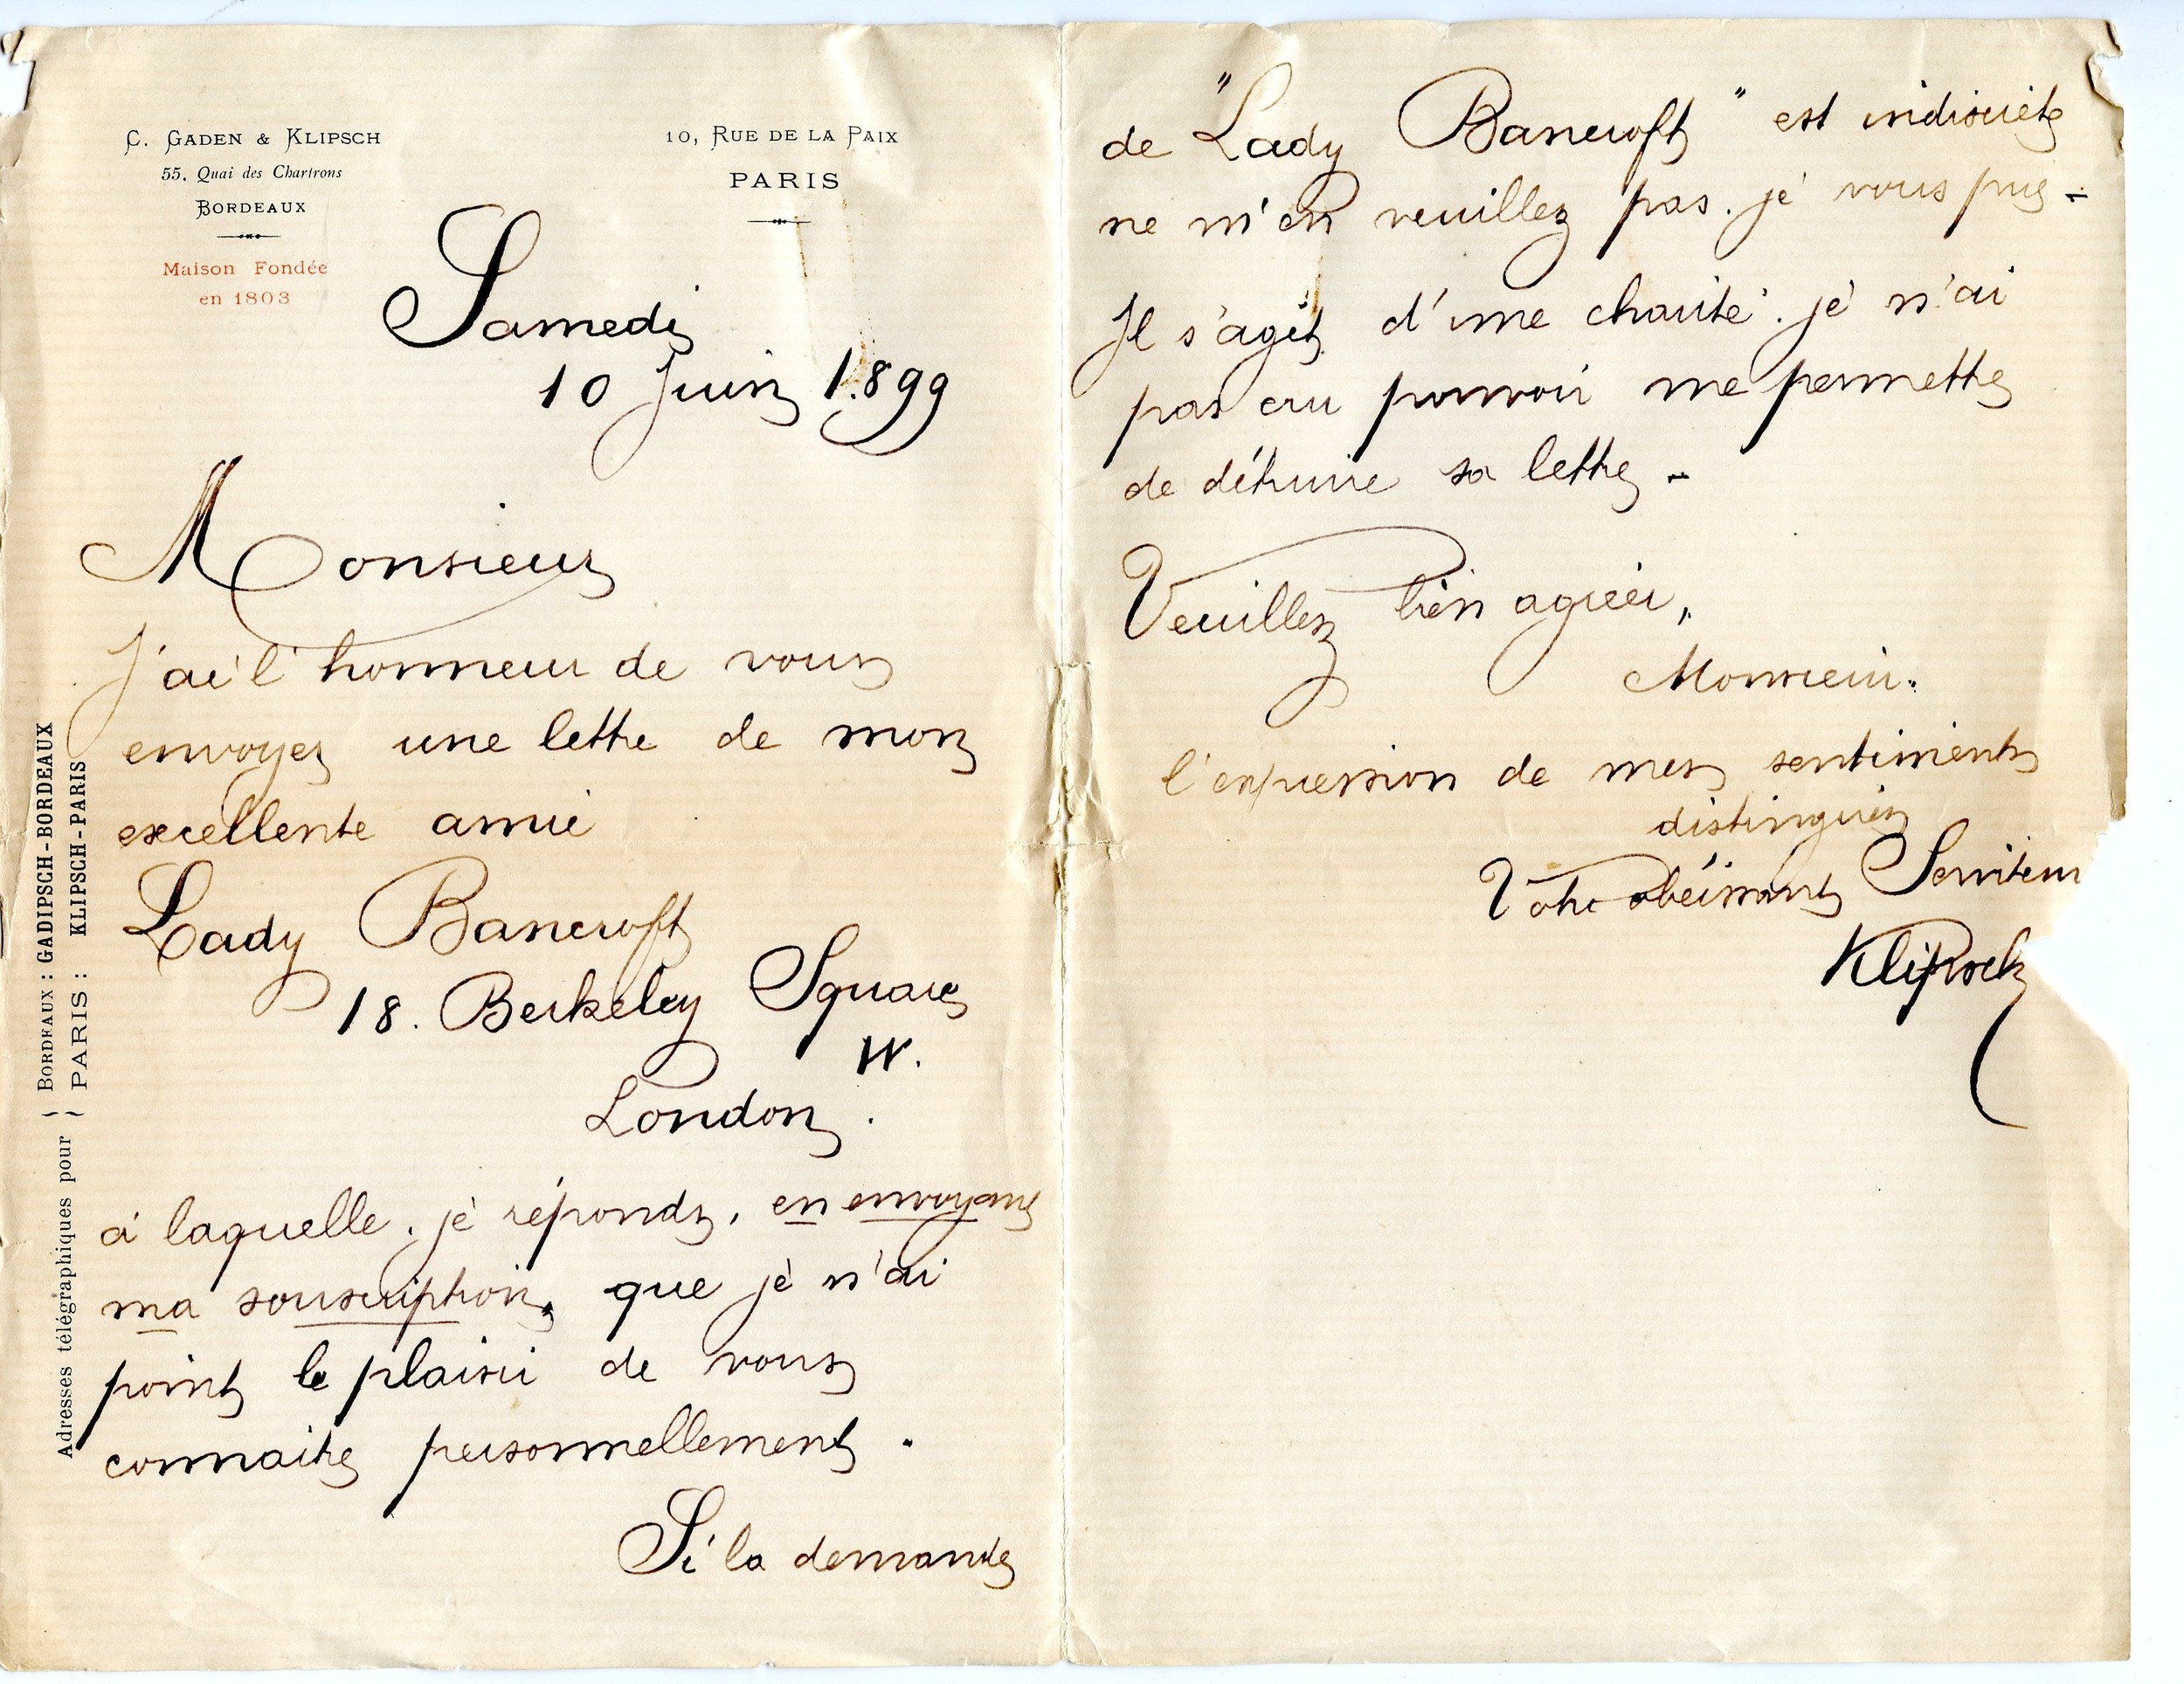 C. GADEN & KLIPSCH
55, Quai des Chartrons
BORDEAUX
Maison Fondée
en 1803
10, RUE DE LA PAIX
PARIS
Adresses télégraphiques pour
BORDEAUX : GADIPSCH-BORDEAUX
PARIS : KLIPSCH-PARIS
Samedi
10 Juin 1.899
Monsieur
J'ai l'honneur de vous
envoyer une lettre de mon
excellente amie
Lady Bancroft
18. Berkeley Square
W.
London.
à laquelle. je réponds, en envoyant
ma souscription, que je n'ai
point le plaisir de vous
connaitre personnellement.
Si la demande
de "Lady Bancroft" est indiscrète
ne m'en veuillez pas. je vous prie -
Il s'agit d'une charité. je n'ai
pas cru pouvoir me permettre
de détruire sa lettre -
Veuillez bien agréer,
Monsieur.
l'expression de mes sentiments
distingués
Votre obéissant Serviteur
Klipsch